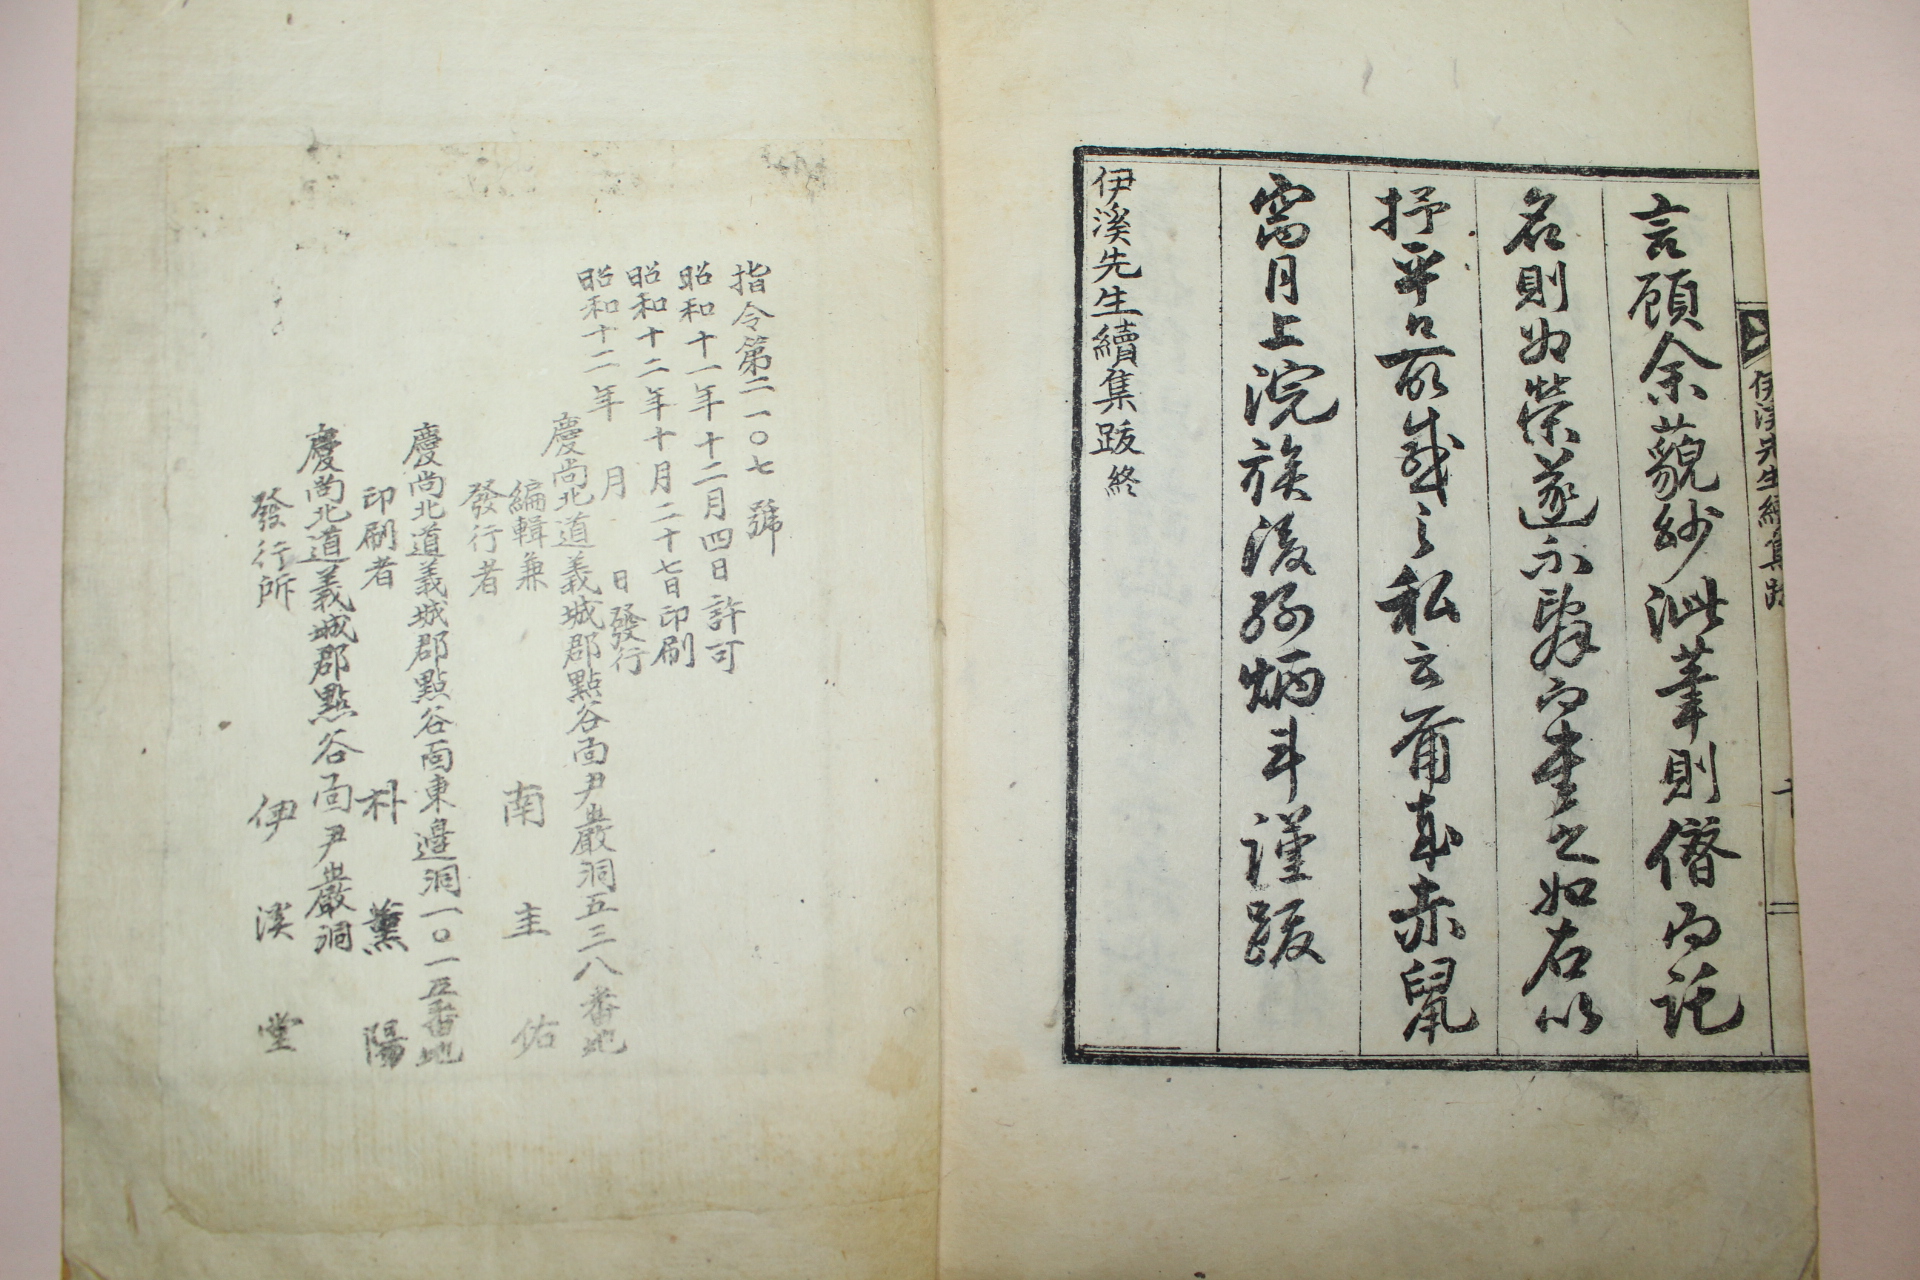 言顧余藐眇泚筆則僭而託
名則如榮遂不辭而書之如右以
抒平日所感之私云爾歲赤鼠
窩月上浣族後孫炳斗謹跋
伊溪先生續集跋終
伊溪先生續集跋
指令第二一〇七號
昭和十一年十二月四日許可
昭和十二年十月二十七日印刷
昭和十二年 月 日發行
慶尚北道義城郡點谷面尹巖洞五三八番地
編輯兼
發行者 南圭佑
慶尚北道義城郡點谷面東邊洞一〇一五番地
印刷者 朴薰陽
慶尚北道義城郡點谷面尹巖洞
發行所 伊溪堂